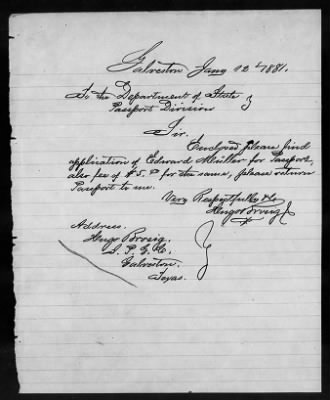 Galveston Jany 12th 1881.
To the Department of State
Passport Division
Sir.
Enclosed please find
application of Edward Müller for Passport,
also fee of $5. for the same, please return
Passport to me.
Very Respectfully
Hugo Brosig
Address.
Hugo Brosig.
Galveston.
Texas.